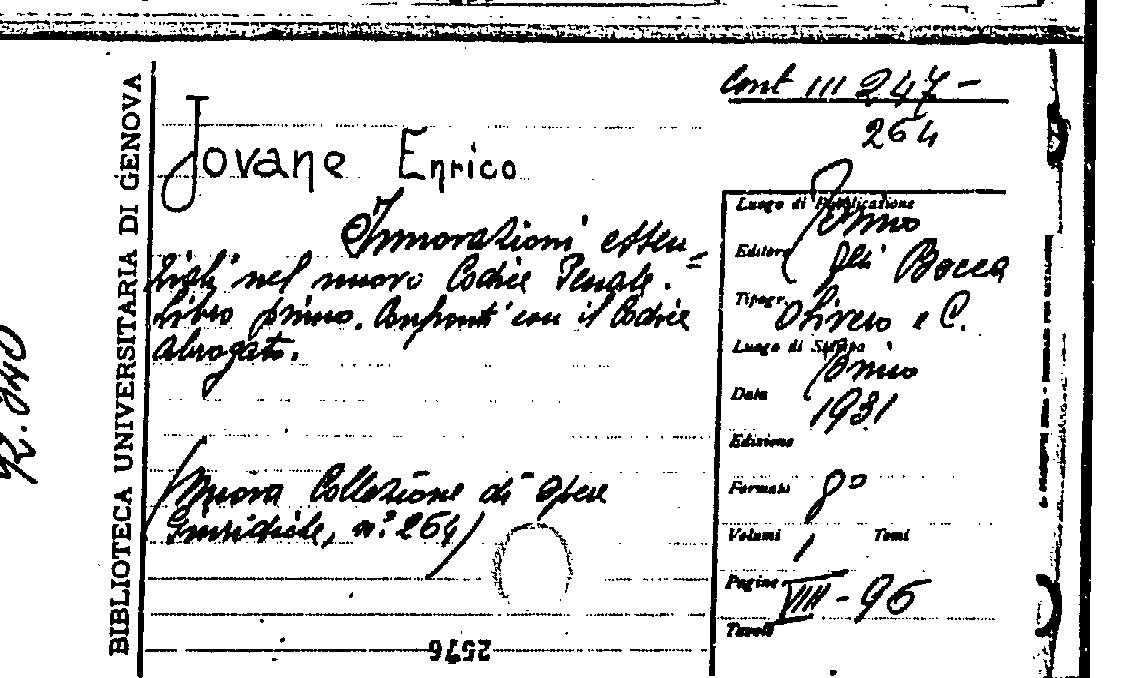 BIBLIOTECA UNIVERSITARIA DI GENOVA
R. 340
Cont III 247-
264
Jovane Enrico
Innovazioni essen=
ziali nel nuovo Codice Penale.
Libro primo. Confronti con il Codice
abrogato.
(Nuova Collezione di opere
Giuridiche, n.° 264)
2576
Luogo di Pubblicazione Torino
Editore Flli Bocca
Tipogr. Olivero e C.
Luogo di Stampa Torino
Data 1931
Edizione
Formato 8°
Volumi 1 Tomi
Pagine VIII-96
Tavole